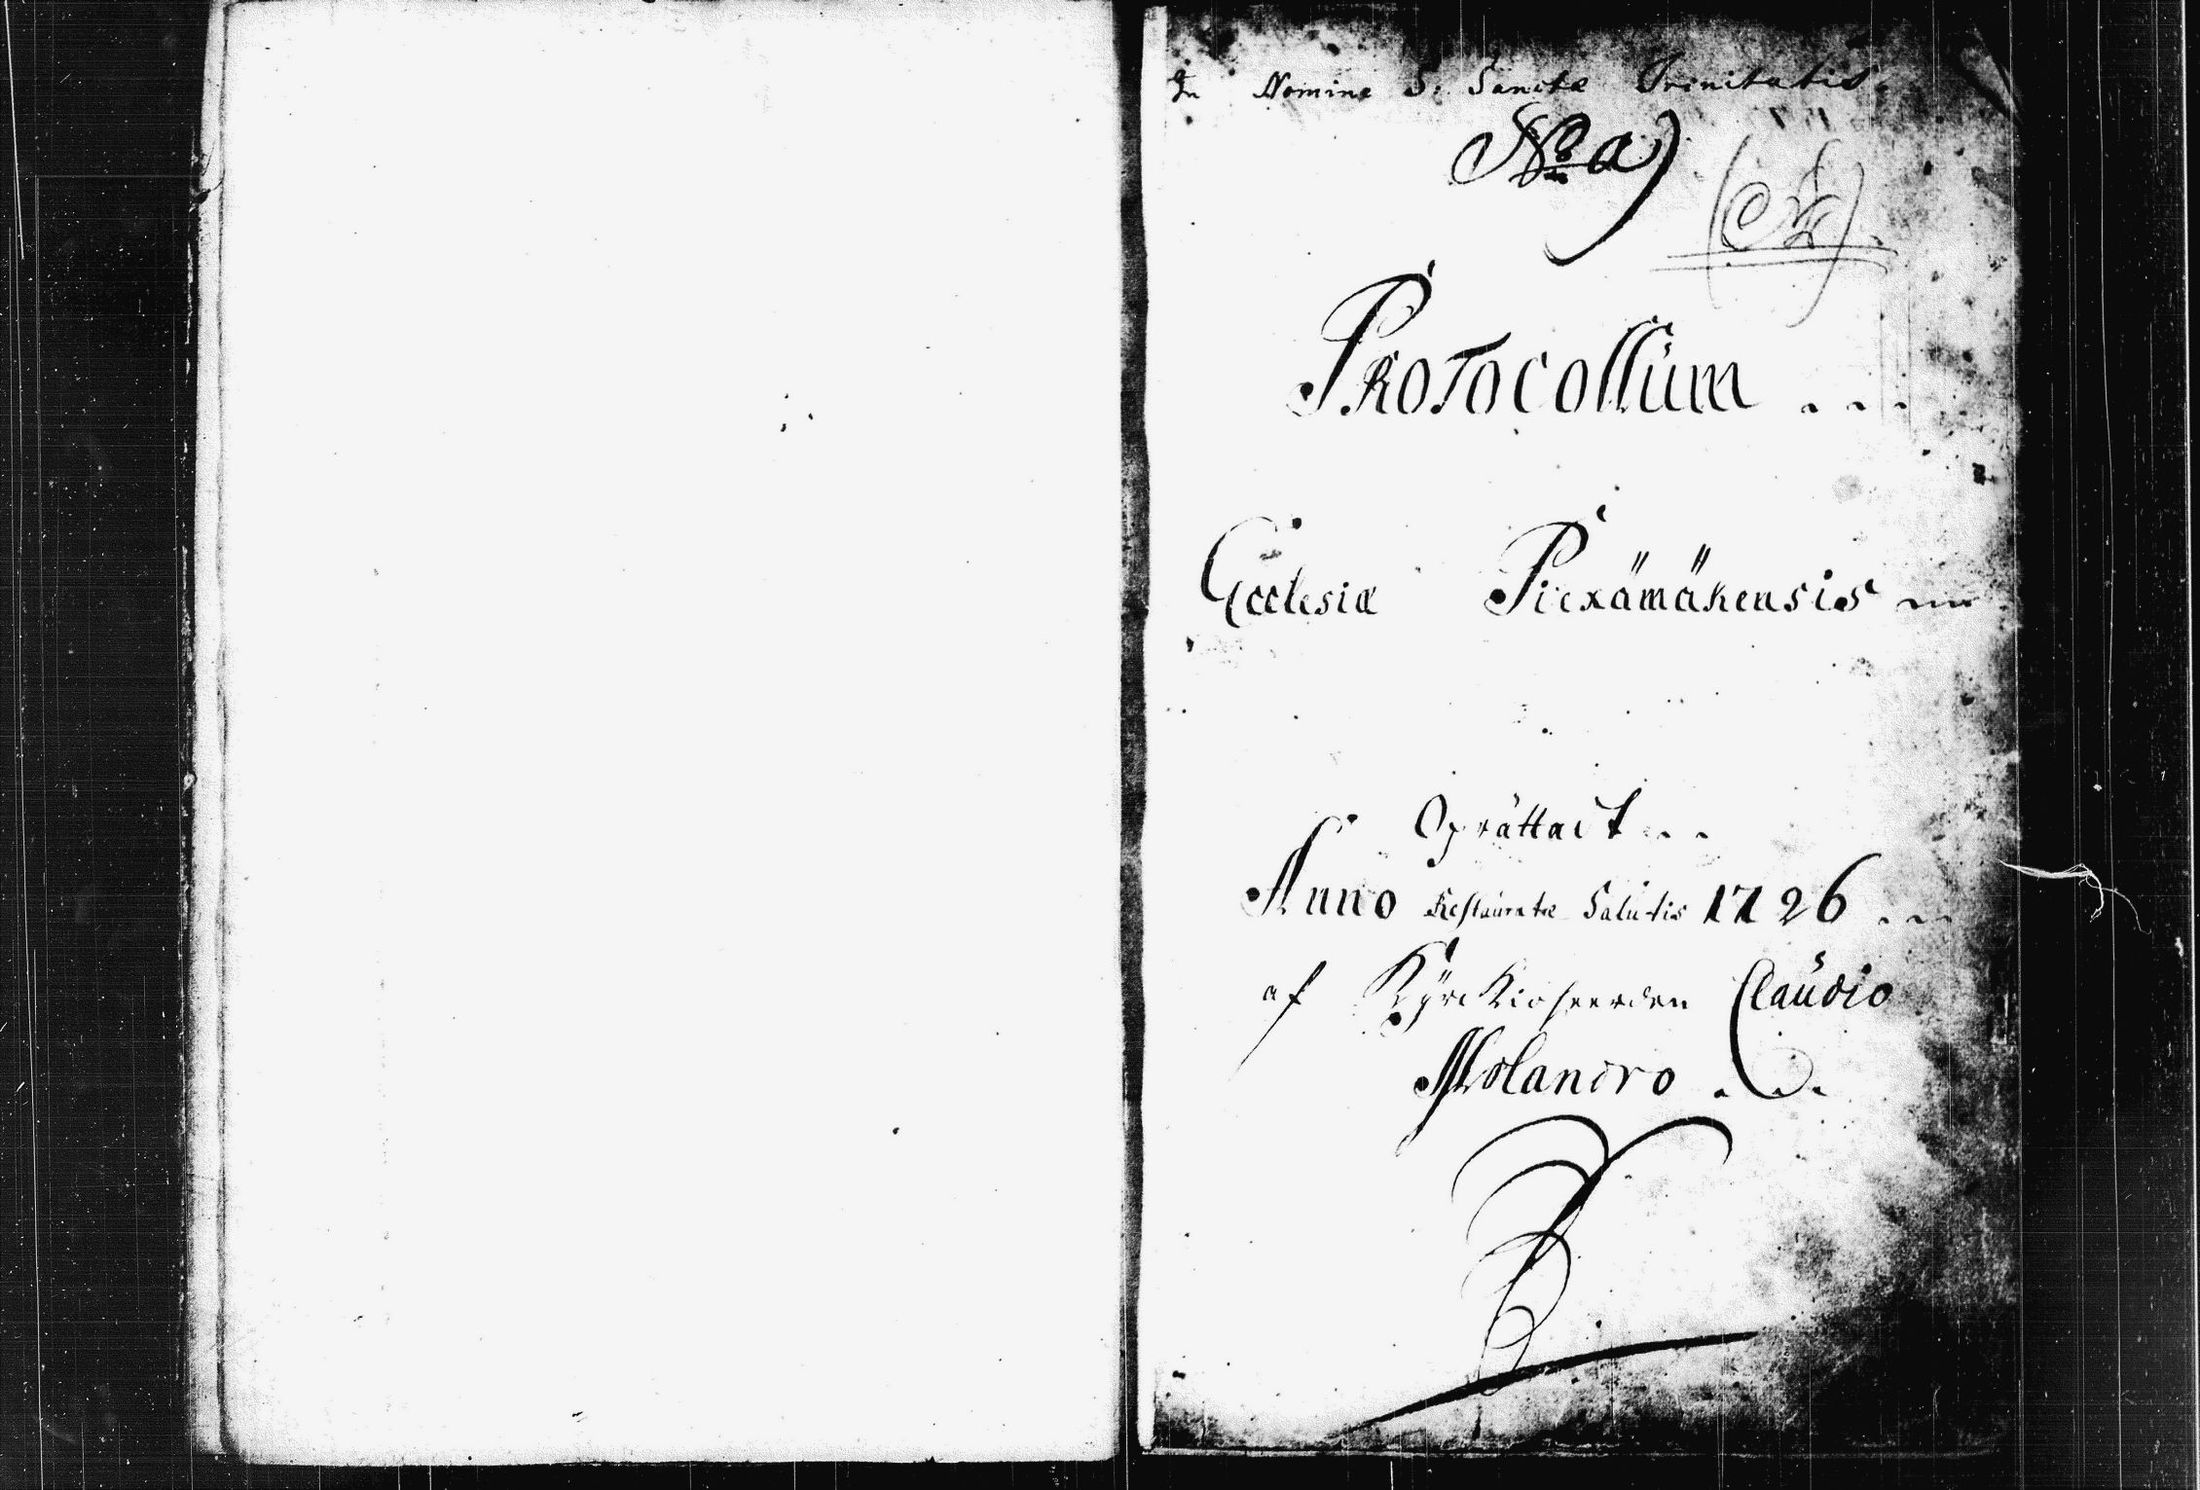 In Nomine S. Sanctæ Trinitatis.
No a)
Protocollum ...
Ecclesiæ Piexämäkensis
Oprättadt ..
Anno Restauratæ Salutis 1726 ...
af Kyrckioherden Claudio
Molandro ...